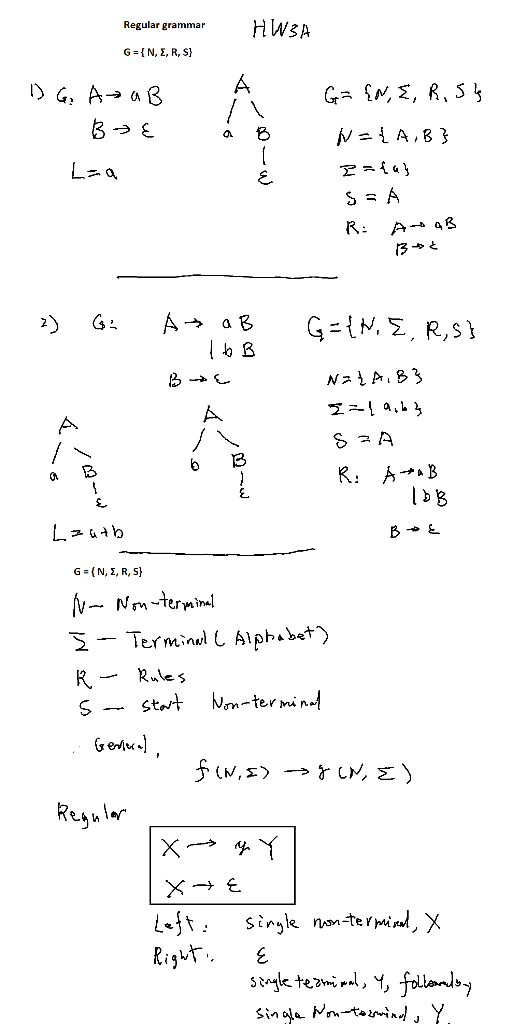 Regular grammar
HW3A
G = { N, Σ, R, S}
1) G: A → aB
B → ε
L = a
A
a B
ε
G = {N, Σ, R, S}
N = {A, B}
Σ = {a}
S = A
R: A → aB
B → ε
2) G: A → aB
| bB
B → ε
A
a B
ε
A
b B
ε
L = a+b
G = {N, Σ, R, S}
N = {A, B}
Σ = {a, b}
S = A
R: A → aB
| bB
B → ε
G = { N, Σ, R, S}
N — Non-terminal
Σ — Terminal (Alphabet)
R — Rules
S — start Non-terminal
General,
f(N, Σ) → g(N, Σ)
Regular
X → y Y
X → ε
Left: single non-terminal, X
Right: ε
single terminal, y, followed by
single Non-terminal, Y.